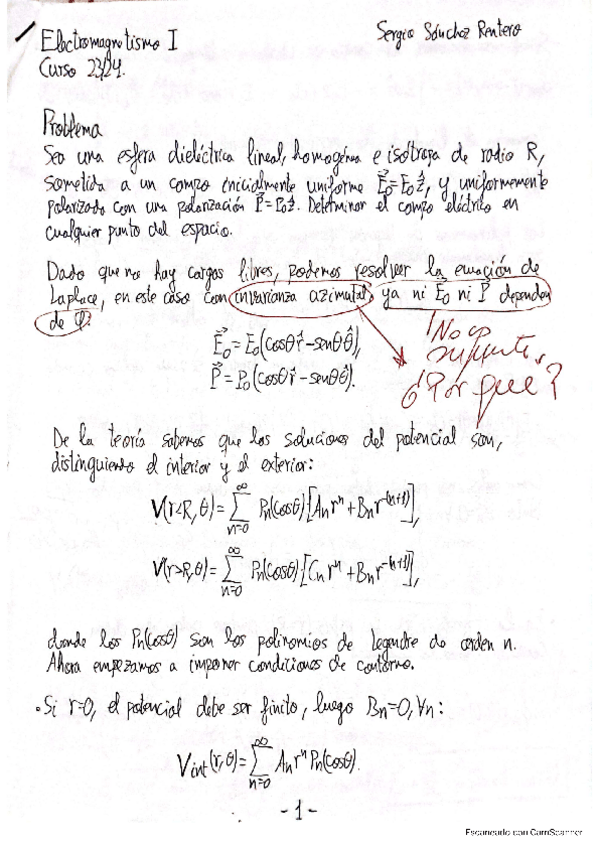 Electromagnetismo I
Sergio Sánchez Rentero
Curso 23/24.
Problema
Sea una esfera dieléctrica lineal, homogénea e isótropa de radio R,
sometida a un campo inicialmente uniforme E⃗₀=E₀ẑ, y uniformemente
polarizada con una polarización P⃗=P₀ẑ. Determinar el campo eléctrico en
cualquier punto del espacio.
Dado que no hay cargas libres, podemos resolver la ecuación de
Laplace, en este caso con invarianza azimutal, ya ni E⃗₀ ni P⃗ dependen
de φ:
E⃗₀=E₀(cosθr̂-senθθ̂),
P⃗=P₀(cosθr̂-senθθ̂).
No es
suficiente.
¿Por qué?
De la teoría sabemos que las soluciones del potencial son,
distinguiendo el interior y el exterior:
V(r<R,θ)=∑_{n=0}^{∞} Pn(cosθ)[Anr^n+Bnr^{-(n+1)}],
V(r>R,θ)=∑_{n=0}^{∞} Pn(cosθ)[Cnr^n+Bnr^{-(n+1)}],
donde los Pn(cosθ) son los polinomios de Legendre de orden n.
Ahora empezamos a imponer condiciones de contorno.
• Si r=0, el potencial debe ser finito, luego Bn=0,∀n:
Vint(r,θ)=∑_{n=0}^{∞} Anr^nPn(cosθ).
-1-
Escaneado con CamScanner